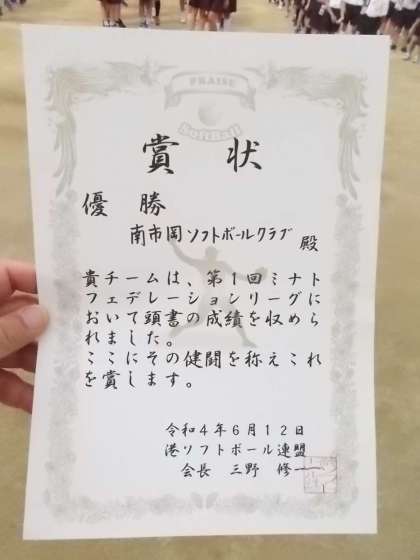 PRAISE
SoftBall
賞状
優勝
南市岡ソフトボールクラブ 殿
貴チームは、第1回ミナト
フェデレーションリーグに
おいて頭書の成績を収めら
れました。
ここにその健闘を称えこれ
を賞します。
令和4年6月12日
港ソフトボール連盟
会長 三野 修一